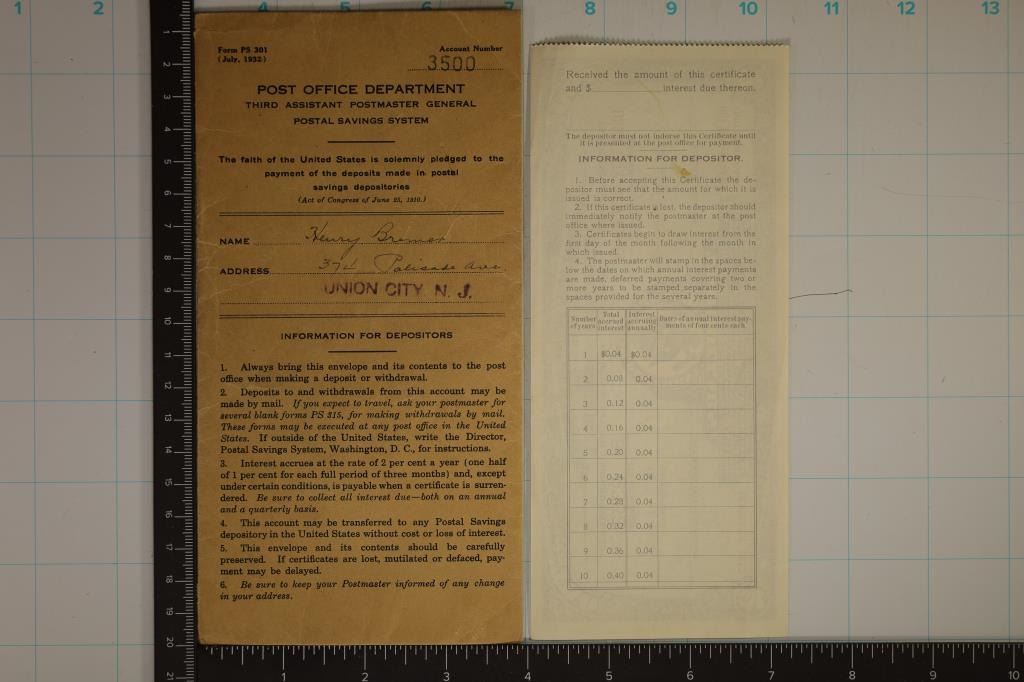 Form PS 301
(July, 1932)
Account Number
3500
POST OFFICE DEPARTMENT
THIRD ASSISTANT POSTMASTER GENERAL
POSTAL SAVINGS SYSTEM
The faith of the United States is solemnly pledged to the
payment of the deposits made in postal
savings depositories
(Act of Congress of June 25, 1910.)
NAME Henry Bremer
ADDRESS 374 Palisade Ave.
UNION CITY N. J.
INFORMATION FOR DEPOSITORS
1. Always bring this envelope and its contents to the post
office when making a deposit or withdrawal.
2. Deposits to and withdrawals from this account may be
made by mail. If you expect to travel, ask your postmaster for
several blank forms PS 315, for making withdrawals by mail.
These forms may be executed at any post office in the United
States. If outside of the United States, write the Director,
Postal Savings System, Washington, D. C., for instructions.
3. Interest accrues at the rate of 2 per cent a year (one half
of 1 per cent for each full period of three months) and, except
under certain conditions, is payable when a certificate is surren-
dered. Be sure to collect all interest due—both on an annual
and a quarterly basis.
4. This account may be transferred to any Postal Savings
depository in the United States without cost or loss of interest.
5. This envelope and its contents should be carefully
preserved. If certificates are lost, mutilated or defaced, pay-
ment may be delayed.
6. Be sure to keep your Postmaster informed of any change
in your address.
Received the amount of this certificate
and $ interest due thereon.
The depositor must not indorse this Certificate until
it is presented at the post office for payment.
INFORMATION FOR DEPOSITOR.
1. Before accepting this Certificate the de-
positor must see that the amount for which it is
issued is correct.
2. If this certificate is lost, the depositor should
immediately notify the postmaster at the post
office where issued.
3. Certificates begin to draw interest from the
first day of the month following the month in
which issued.
4. The postmaster will stamp in the spaces be-
low the dates on which annual interest payments
are made, deferred payments covering two or
more years to be stamped separately in the
spaces provided for the several years.
Number of years Total accrued interest Interest accruing annually Dates of annual interest pay-
ments of four cents each.
1 $0.04 $0.04
2 0.08 0.04
3 0.12 0.04
4 0.16 0.04
5 0.20 0.04
6 0.24 0.04
7 0.28 0.04
8 0.32 0.04
9 0.36 0.04
10 0.40 0.04